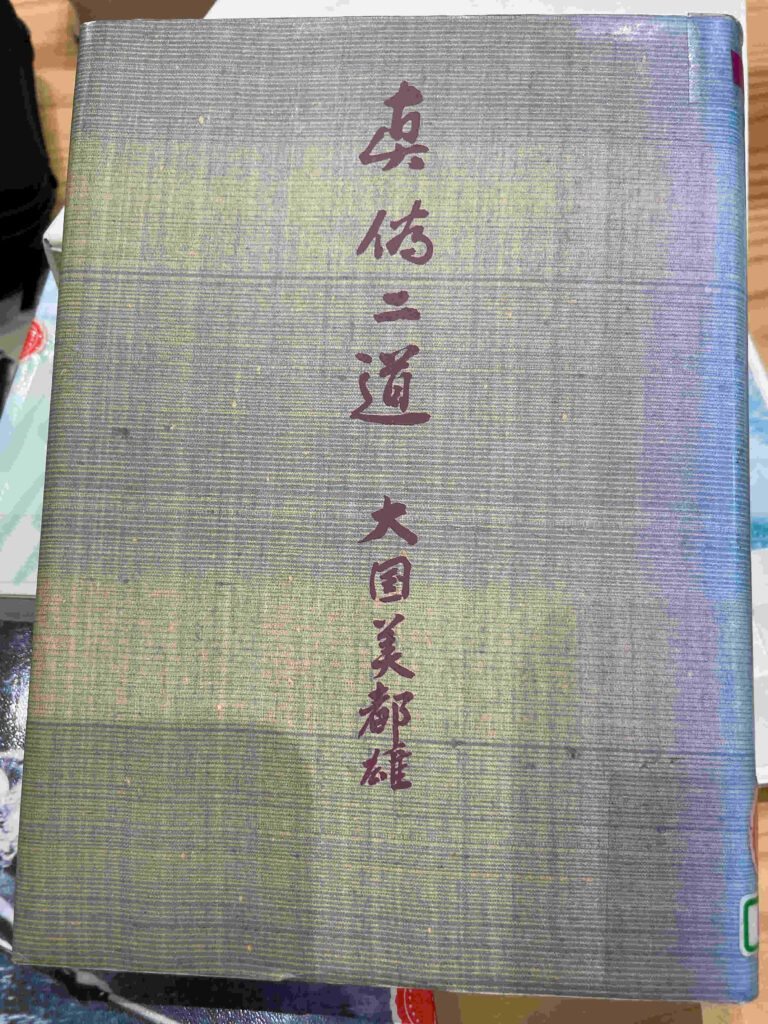 真偽二道
大国美都雄